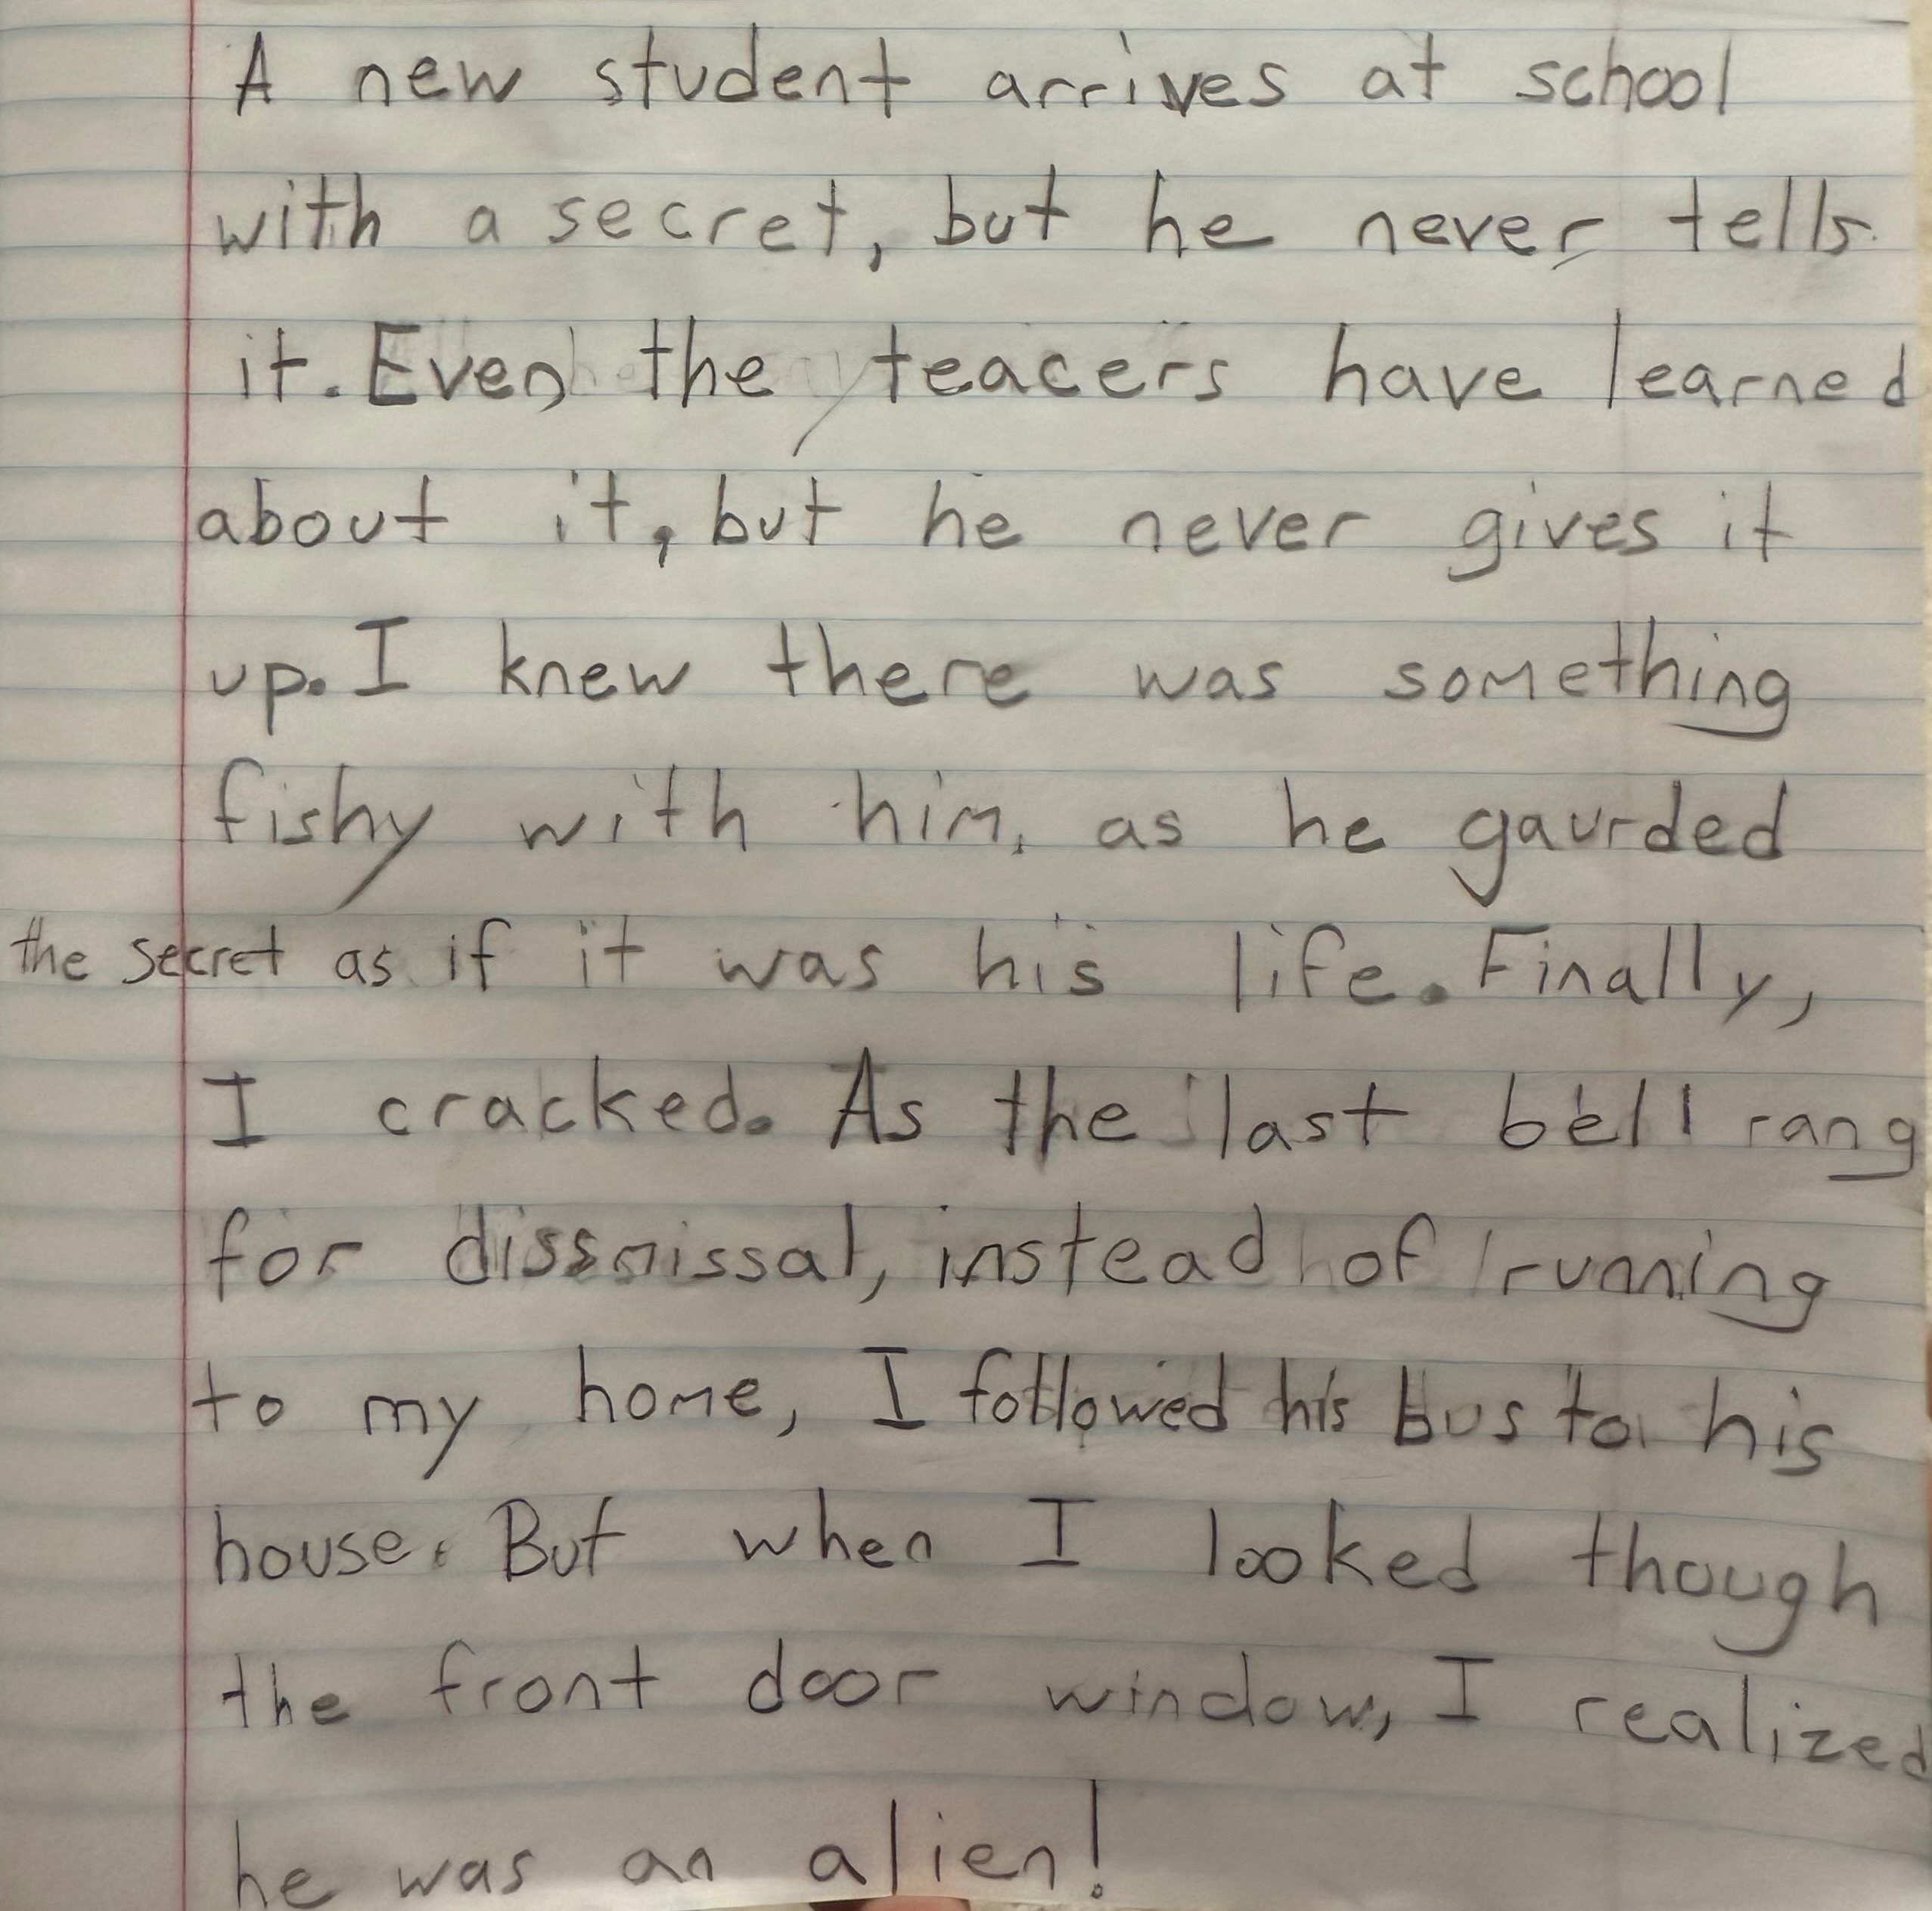 A new student arrives at school
with a secret, but he never tells
it. Even the teacers have learned
about it, but he never gives it
up. I knew there was something
fishy with him, as he gaurded
the secret as if it was his life. Finally,
I cracked. As the last bell rang
for dissmissal, instead of running
to my home, I followed his bus to his
house. But when I looked though
the front door window, I realized
he was an alien!